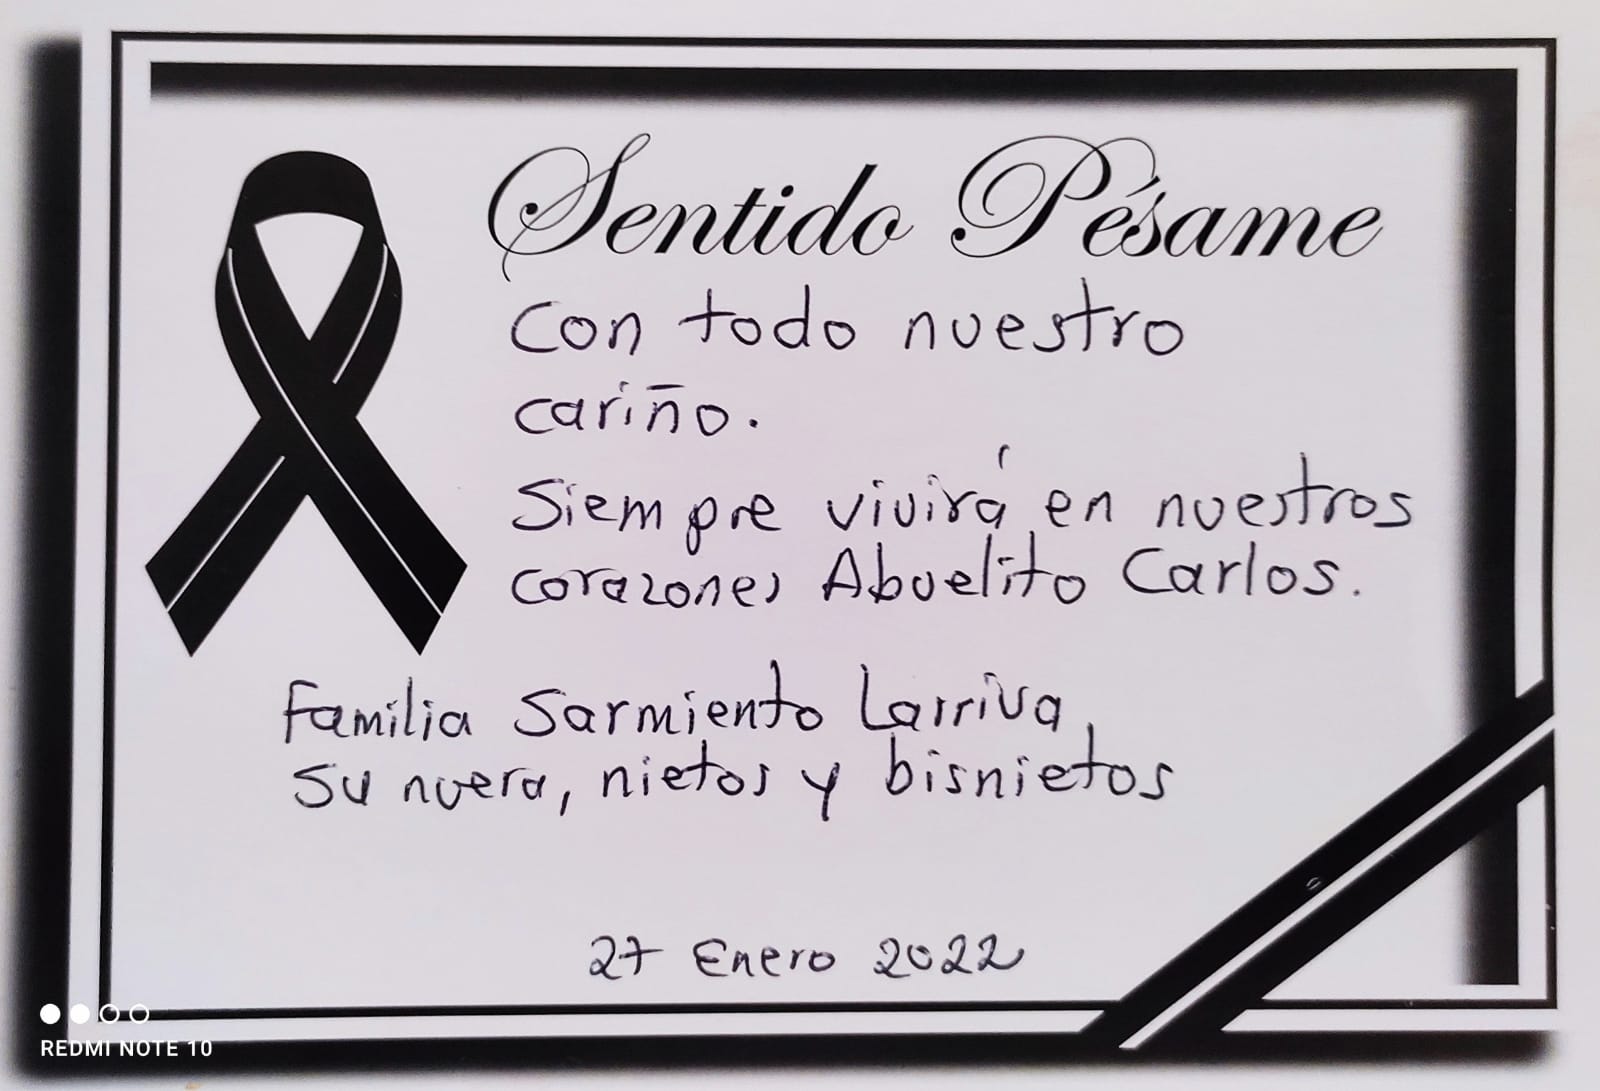 Sentido Pésame
Con todo nuestro
cariño.
Siempre vivirá en nuestros
corazones Abuelito Carlos.
Familia Sarmiento Larriva,
su nuera, nietos y bisnietos
27 Enero 2022
REDMI NOTE 10